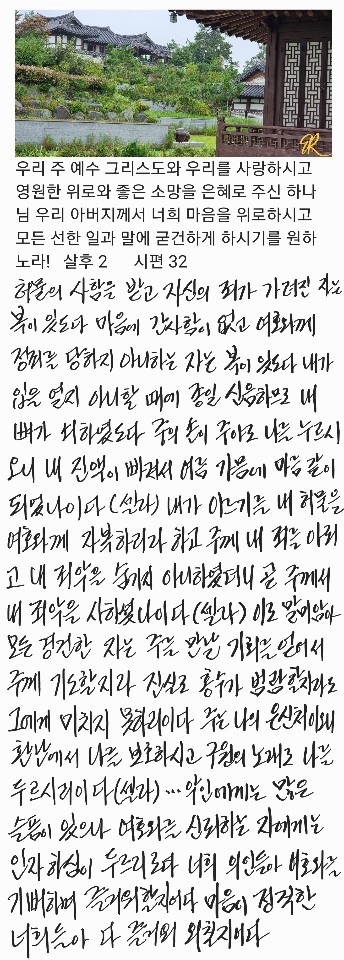 ER
우리 주 예수 그리스도와 우리를 사랑하시고
영원한 위로와 좋은 소망을 은혜로 주신 하나
님 우리 아버지께서 너희 마음을 위로하시고
모든 선한 일과 말에 굳건하게 하시기를 원하
노라! 살후 2 시편 32
허물의 사함을 받고 자신의 죄가 가려진 자는
복이 있도다 마음에 간사함이 없고 여호와께
정죄를 당하지 아니하는 자는 복이 있도다 내가
입을 열지 아니할 때에 종일 신음하므로 내
뼈가 쇠하였도다 주의 손이 주야로 나를 누르시
오니 내 진액이 빠져서 여름 가뭄에 마름 같이
되었나이다 (셀라) 내가 이르기를 내 허물을
여호와께 자복하리라 하고 주께 내 죄를 아뢰
고 내 죄악을 숨기지 아니하였더니 곧 주께서
내 죄악을 사하셨나이다 (셀라) 이로 말미암아
모든 경건한 자는 주를 만날 기회를 얻어서
주께 기도할지라 진실로 홍수가 범람할지라도
그에게 미치지 못하리이다 주는 나의 은신처이오니
환난에서 나를 보호하시고 구원의 노래로 나를
두르시리이다 (셀라) … 악인에게는 많은
슬픔이 있으나 여호와를 신뢰하는 자에게는
인자하심이 두르리로다 너희 의인들아 여호와를
기뻐하며 즐거워할지어다 마음이 정직한
너희들아 다 즐거이 외칠지어다